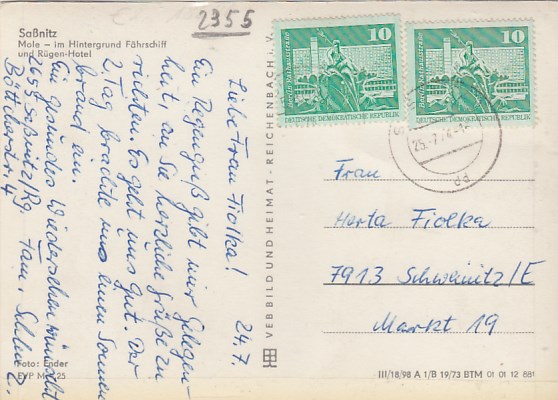 2355
Saßnitz
Mole – im Hintergrund Fährschiff
und Rügen-Hotel
24.7.
Liebe Frau Fiolka!
Ein Regenguß gibt mir Gelegen-
heit, an Sie herzliche Grüße zu
richten. Es geht uns gut. Der
2. Tag brachte uns einen Sonnen-
brand ein.
Ein gesundes Wiedersehen wünscht
Fam.
Saßnitz/Rg.
Foto: Ender
VEB BILD UND HEIMAT · REICHENBACH I. V.
10
Berlin Rathausstraße
DEUTSCHE DEMOKRATISCHE REPUBLIK
10
Berlin Rathausstraße
DEUTSCHE DEMOKRATISCHE REPUBLIK
Frau
Herta Fiolka
7913 Schweinitz/E
Markt 19
III/18/98 A 1/B 19/73 BTM 01 01 12 881